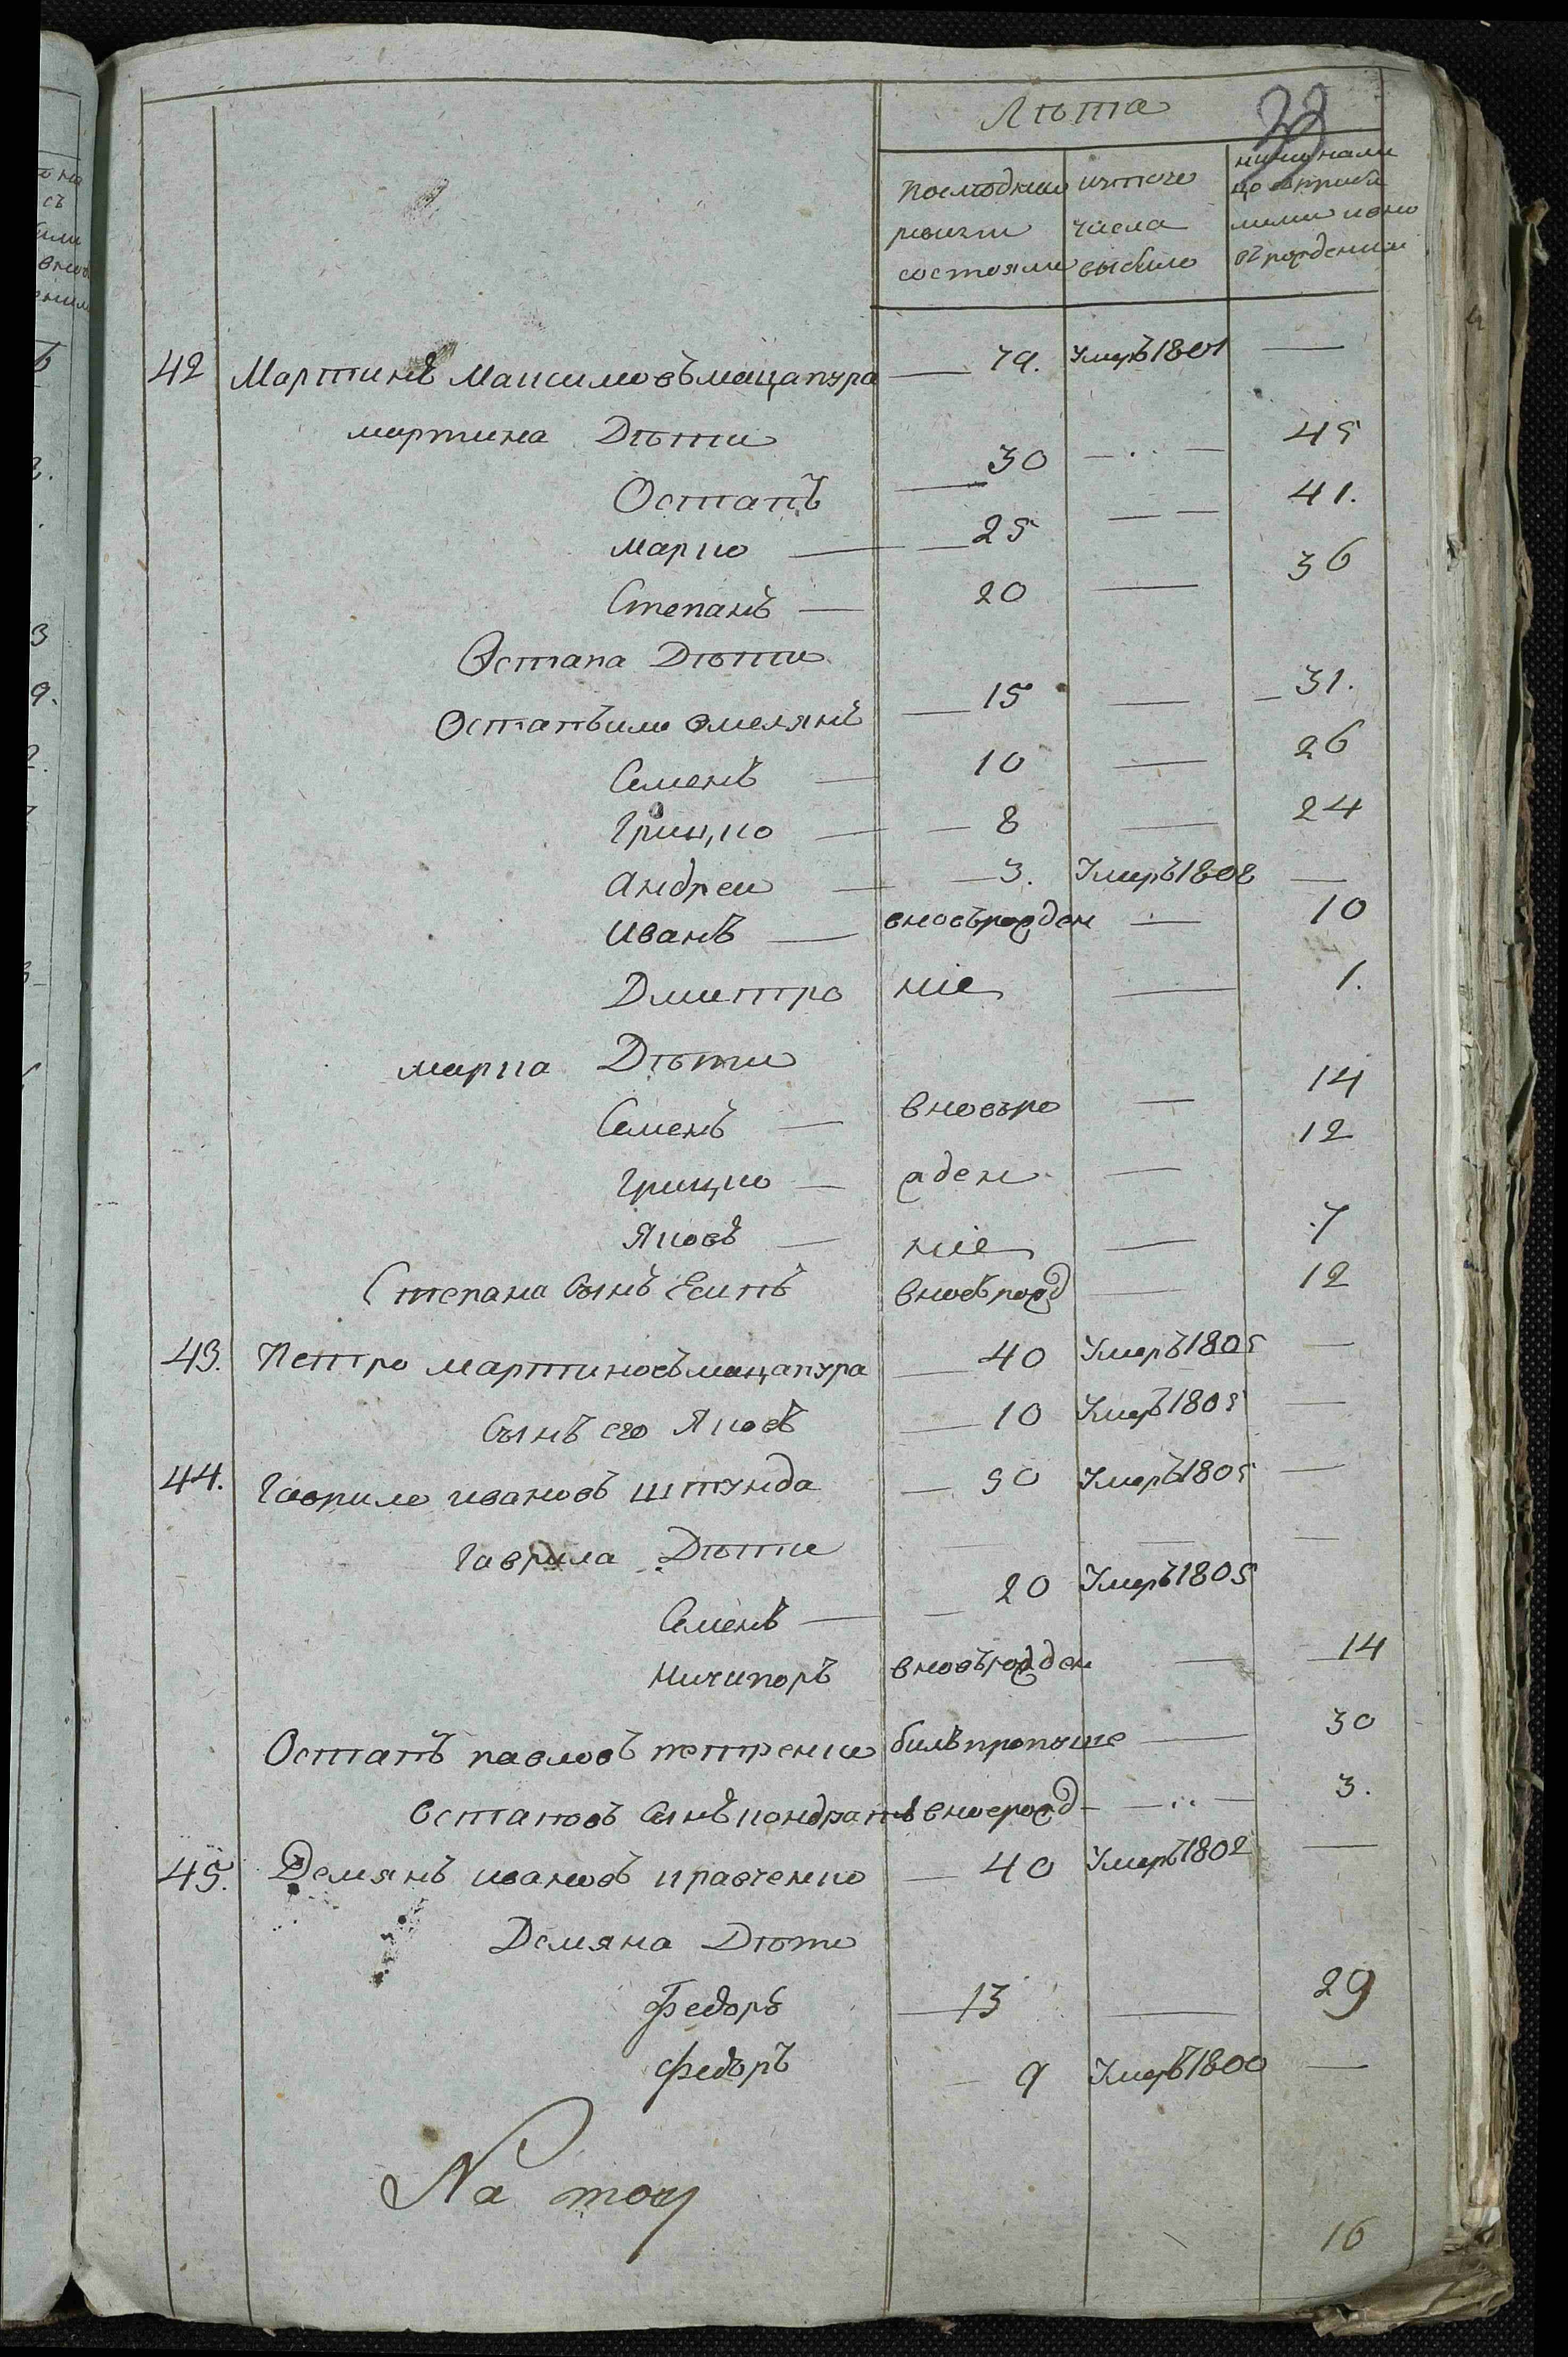 Лѣта
последней ревизіи состояли
исъ того числа выбило
ныне нали цо сприби лими и вно въ рождении
42 Мартинъ Максимовъ мацапура — 79. Умеръ 1801 —
мартина Дѣти
Остапъ — 30 — 45
марко — 25 — 41.
Степанъ — 20 — 36
Остапа Дѣти
Остапъ или омелянъ — 15 — 31.
Семенъ — 10 — 26
Грицко — 8 — 24
андреи — 3. Умеръ 1808 —
иванъ — вновърожден — 10
Дмитро ніе — 1.
марка Дѣти
Семенъ — вновъро — 14
Грицко — жден — 12
Яковъ — ніе — 7
Степана сынъ Есипъ вновъ рожд — 12
43. Петро мартиновъ мацапура — 40 Умеръ 1805 —
Сынъ его Яковъ — 10 Умеръ 1805 —
44. Гаврило ивановъ штунда — 50 Умеръ 1805 —
Гаврила Дѣти — —
Семенъ — 20 Умеръ 1805
Ничипоръ вновърожден — 14
Остапъ павловъ петренко билъ пропуще — 30
остаповъ сынъ кондратъ вноврожд — 3.
45. Демянъ ивановъ кравченко — 40 Умеръ 1802 —
Демяна Дѣти
Федоръ — 13 — 29
федоръ — 9 Умеръ 1800 —
На той
16